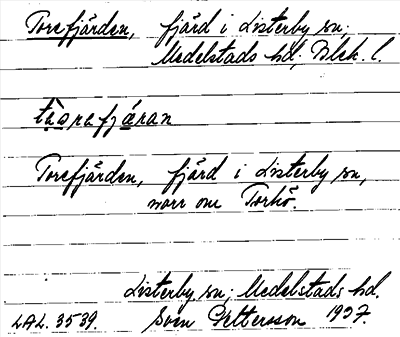 Torefjärden, fjärd i Listerby sn;
Medelstads hd; Blek. l.
tåorefjäran
Torefjärden, fjärd i Listerby sn,
norr om Torhö.
Listerby sn; Medelstads hd.
LAL. 3539. Sven Pettersson 1937.